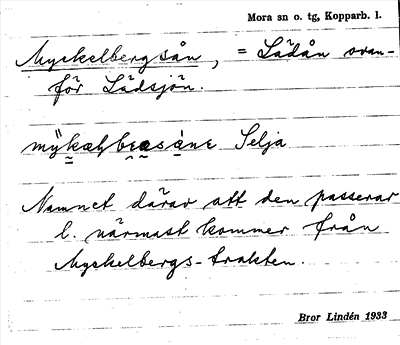 Mora sn o. tg, Kopparb. l.
Myckelbergsån, = Lädån ovan-
för Lädsjön.
Selja
Namnet därav att den passerar
l. närmast kommer från
Myckelbergs-trakten.
Bror Lindén 1933